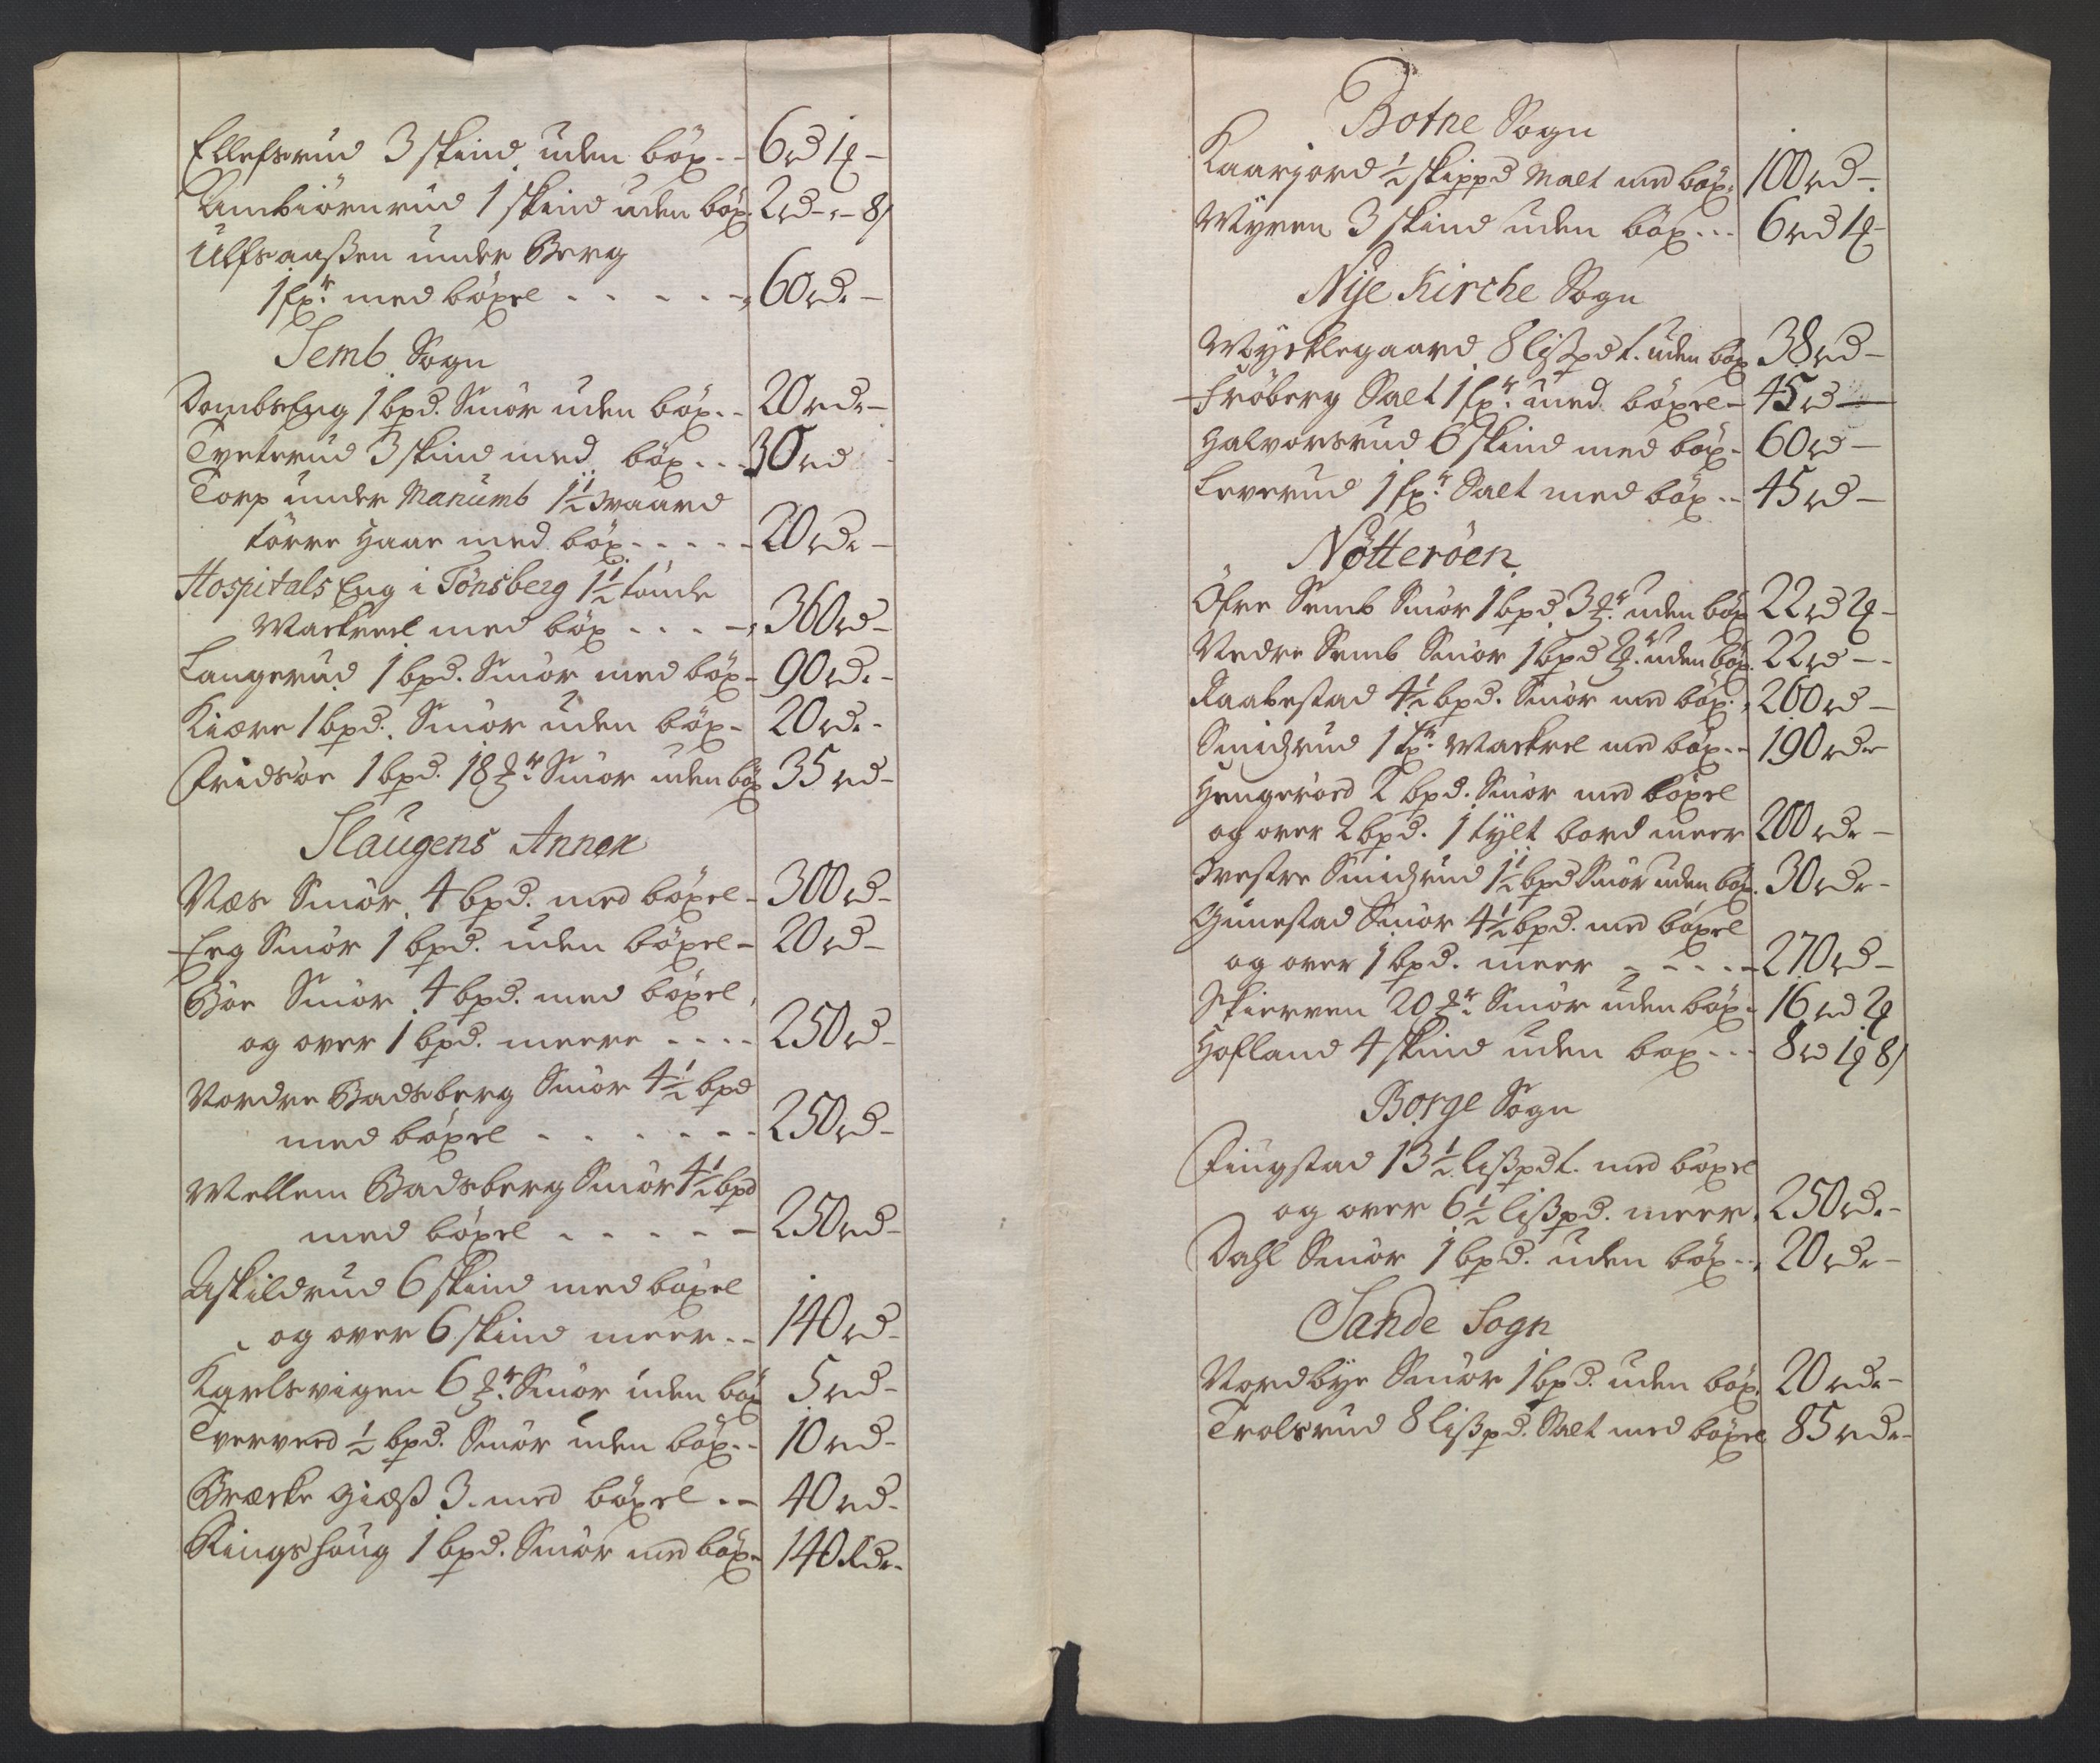 Ellefsrud 3 skind uden böx. - 6 rd 1 ℔ -
Ambiörnrud 1 skind uden böx. 2 rd - - 8 s
Ulfsaassen under Berg
1 fr. med böxel - - - - - 60 rd. -
Semb Sogn
DombsEng 1 bpd. Smör uden böx. - 20 rd. -
Tveterud 3 skind med böx. - - 30 rd
Torp under Manumb 1½ Waard
törre Haar med böx. - - - - 20 rd. -
Hospitals Eng i Tönsberg 1½ tönde
Mackrel med böx - - - - 360 rd -
Langerud 1 bpd. Smör med böx - 90 rd. -
Kiære 1 bpd. Smör uden böx - 20 rd. -
Fridsöe 1 bpd. 18 ℔r. Smör uden böx 35 rd -
Slaugens Annex
Næs Smör 4 bpd. med böxel - 300 rd -
Eeg Smör 1 bpd. uden böxel - 20 rd -
Böe Smör 4 bpd. med böxel,
og over 1 bpd. meere - - - - 250 rd -
Nordre Basberg Smör 4½ bpd
med böxel - - - - - - 250 rd -
Mellem Basberg Smör 4½ bpd
med böxel - - - - - 250 rd -
Askildrud 6 skind med böxel
og over 6 skind meer - - 140 rd -
Karlsvigen 6 ℔r. Smör uden böx 5 rd -
Tverved ½ bpd. Smör uden böx. - 10 rd -
Bræcke giæß 3. med böxel - - 40 rd -
Ringshoug 1 bpd. Smör med böx - 140 Rd. -
Botne Sogn
Kaarjord ½ skippd Malt med böx. 100 rd -
Myren 3 skind uden böx - - - 6 rd 1 ℔ -
Nÿe Kirche Sogn
Möÿeklegaard 8 lißpd t. uden böx 38 rd -
Fröberg Salt 1 fr. med böxel - 45 rd -
Halvorsrud 6 skind med böx - 60 rd -
Leverud 1 fr. Salt med böx - - 45 rd -
Nötteröen
Öfre Semb Smör 1 bpd. 3 ℔r. uden böx 22 rd 2 ℔ -
Nedre Semb Smör 1 bpd 2 ℔r. uden böx. 22 rd - -
Raabestad 4½ bpd. Smör med böx. 260 rd -
Smidsrud 1 fr. Mackrel med böx - - 190 rd.
Hengeröed 2 bpd. Smör med böxel
og over 2 bpd. 1 tylt bord meer 200 rd. -
Westre Smidsrud 1½ bpd Smör uden böx. 30 rd. -
Gunestad Smör 4½ bpd. med böxel
og over 1 bpd. meer - - - - - 270 rd -
Skierven 20 ℔r. Smör uden böx - 16 rd 2 ℔
Hofland 4 skind uden böx - - - 8 rd 1 ℔ 8 s
Borge Sogn
Fingstad 13½ lißpd t. med böxel
og over 6½ lißpd. meer. 250 rd. -
Dahl Smör 1 bpd. uden böx - - 20 rd. -
Sande Sogn
Nordbye Smör 1 bpd. uden böx. 20 rd. -
Trolsrud 8 lißpd. Salt med böxel 85 rd. -